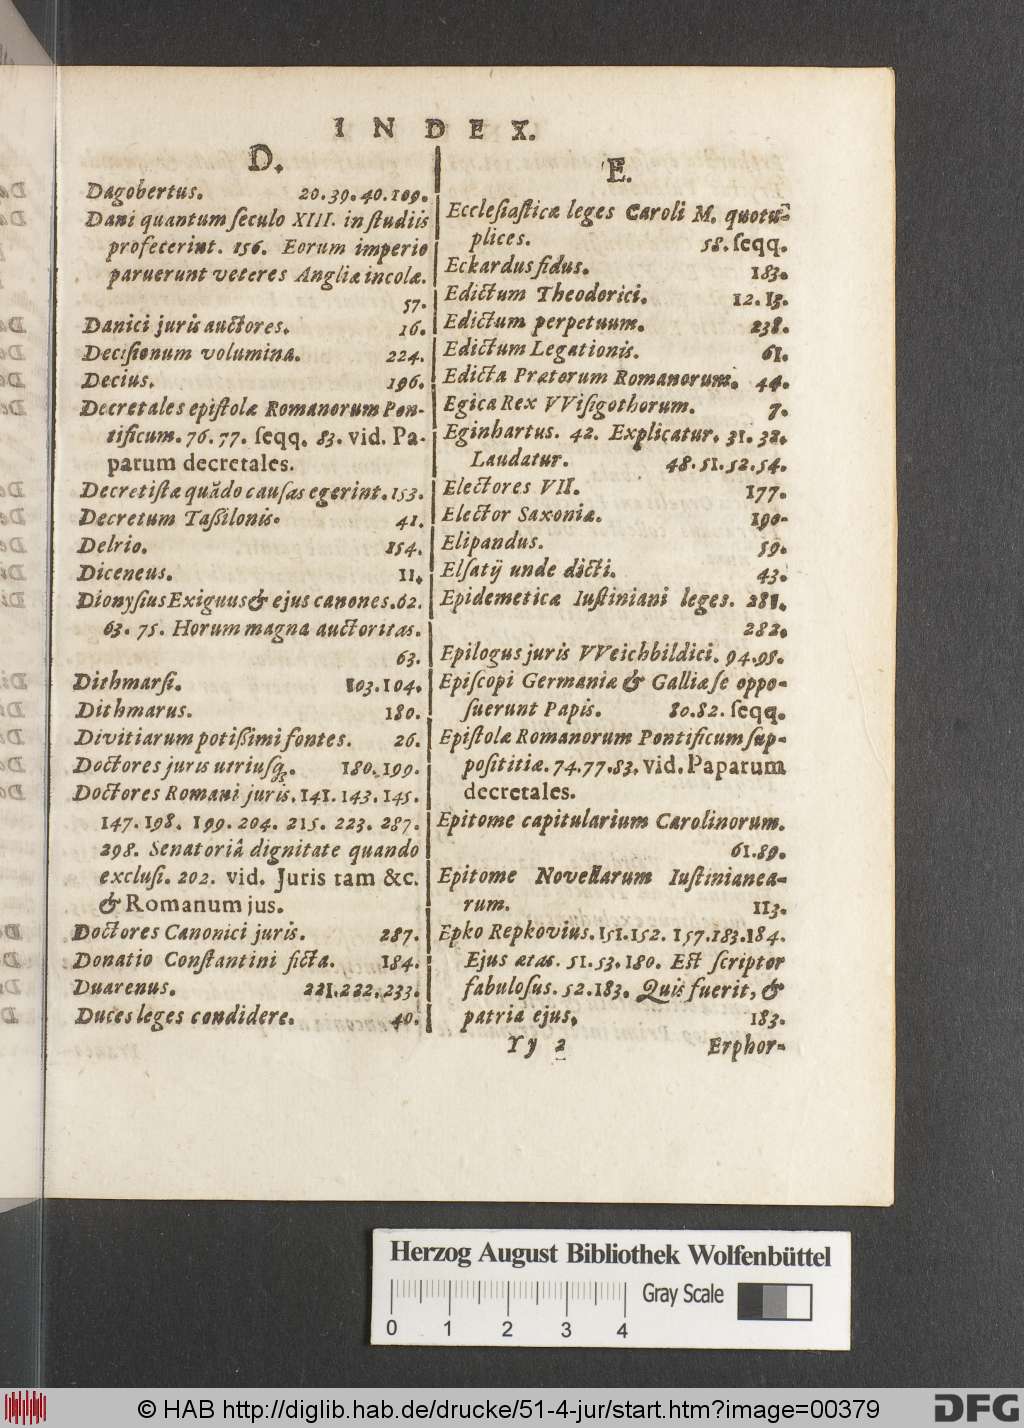 INDEX.
D.
Dagobertus. 20.39.40.109.
Dani quantum seculo XIII. in studiis
profecerint. 156. Eorum imperio
paruerunt veteres Angliæ incolæ.
57.
Danici juris auctores. 16.
Decisionum volumina. 224.
Decius. 196.
Decretales epistolæ Romanorum Pon-
tificum. 76. 77. seqq. 83. vid. Pa-
parum decretales.
Decretistæ quãdo causas egerint. 153.
Decretum Taßilonis. 41.
Delrio. 154.
Diceneus. 11.
Dionysius Exiguus & ejus canones. 62.
63. 75. Horum magna auctoritas.
63.
Dithmarsi. 103.104.
Dithmarus. 180.
Divitiarum potißimi fontes. 26.
Doctores juris utriusq;. 180.199.
Doctores Romani juris. 141. 143. 145.
147. 198. 199. 204. 215. 223. 287.
298. Senatoriâ dignitate quando
exclusi. 202. vid. Juris tam &c.
& Romanum jus.
Doctores Canonici juris. 287.
Donatio Constantini ficta. 184.
Duarenus. 221.222.233.
Duces leges condidere. 40.
E.
Ecclesiasticæ leges Caroli M. quotu-
plices. 58. seqq.
Eckardus fidus. 183.
Edictum Theodorici. 12.13.
Edictum perpetuum. 238.
Edictum Legationis. 61.
Edicta Prætorum Romanorum. 44.
Egica Rex VVisigothorum. 7.
Eginhartus. 42. Explicatur. 31. 32.
Laudatur. 48.51.52.54.
Electores VII. 177.
Elector Saxoniæ. 190.
Elipandus. 59.
Elsatij unde dicti. 43.
Epidemeticæ Iustiniani leges. 281.
282.
Epilogus juris VVeichbildici. 94.98.
Episcopi Germaniæ & Galliæ se oppo-
suerunt Papis. 80.82. seqq.
Epistolæ Romanorum Pontificum sup-
posititiæ. 74.77.83. vid. Paparum
decretales.
Epitome capitularium Carolinorum.
61.89.
Epitome Novellarum Iustinianea-
rum. 113.
Epko Repkovius. 151.152. 157.183.184.
Ejus ætas. 51.53.180. Est scriptor
fabulosus. 52.183. Quis fuerit, &
patria ejus. 183.
Yy 2 Erphor-
Herzog August Bibliothek Wolfenbüttel
Gray Scale
0 1 2 3 4
© HAB http://diglib.hab.de/drucke/51-4-jur/start.htm?image=00379
DFG